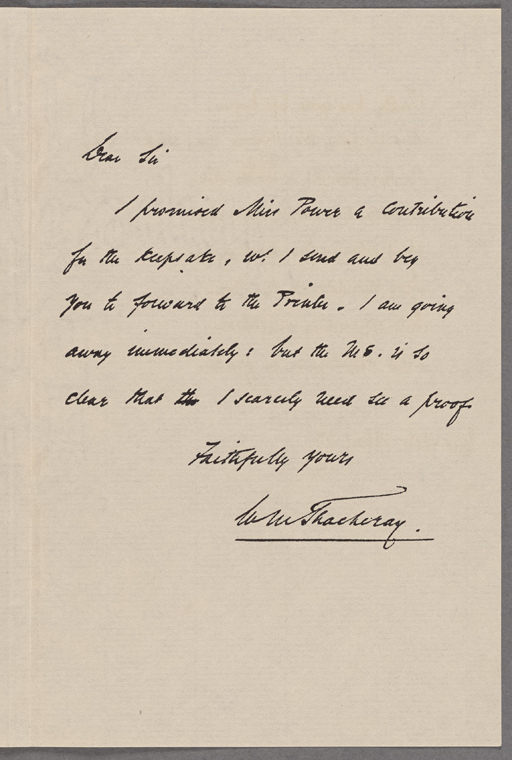 Dear Sir
I promised Miss Power a contribution
for the Keepsake, wh. I send and beg
you to forward to the Printer. I am going
away immediately: but the MS. is so
clear that the I scarcely need see a proof
Faithfully yours
W M Thackeray.